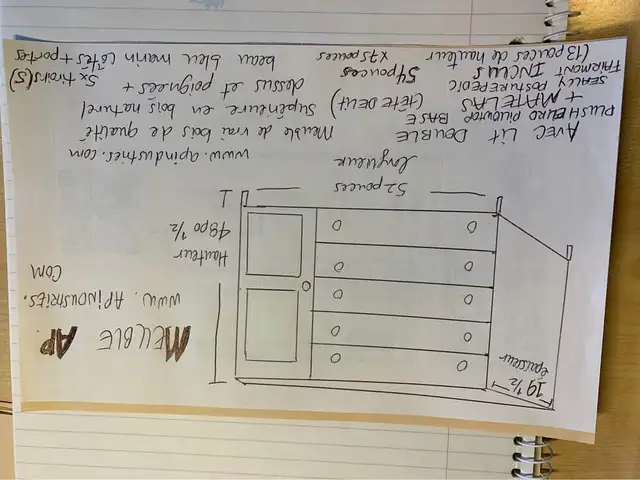 MEUBLE AP.
WWW. APINDUSTRIES.
COM
19 1/2
épaisseur
Hauteur
48po 1/2
52 pouces
longueur
www.apindustries.com
AVEC LIT DOUBLE
PLUSH EURO PILLOWTOP BASE
+ MATELAS (TÊTE DE LIT)
SEALLY POSTUREPEDIC
FAIRMONT INCLUS 54 pouces
(13 pouces de hauteur x75 pouces
Meuble de vrai bois de qualité
Supérieure en bois naturel
dessus et poignées +
5x tiroirs(5)
beau bleu marin côtés + portes